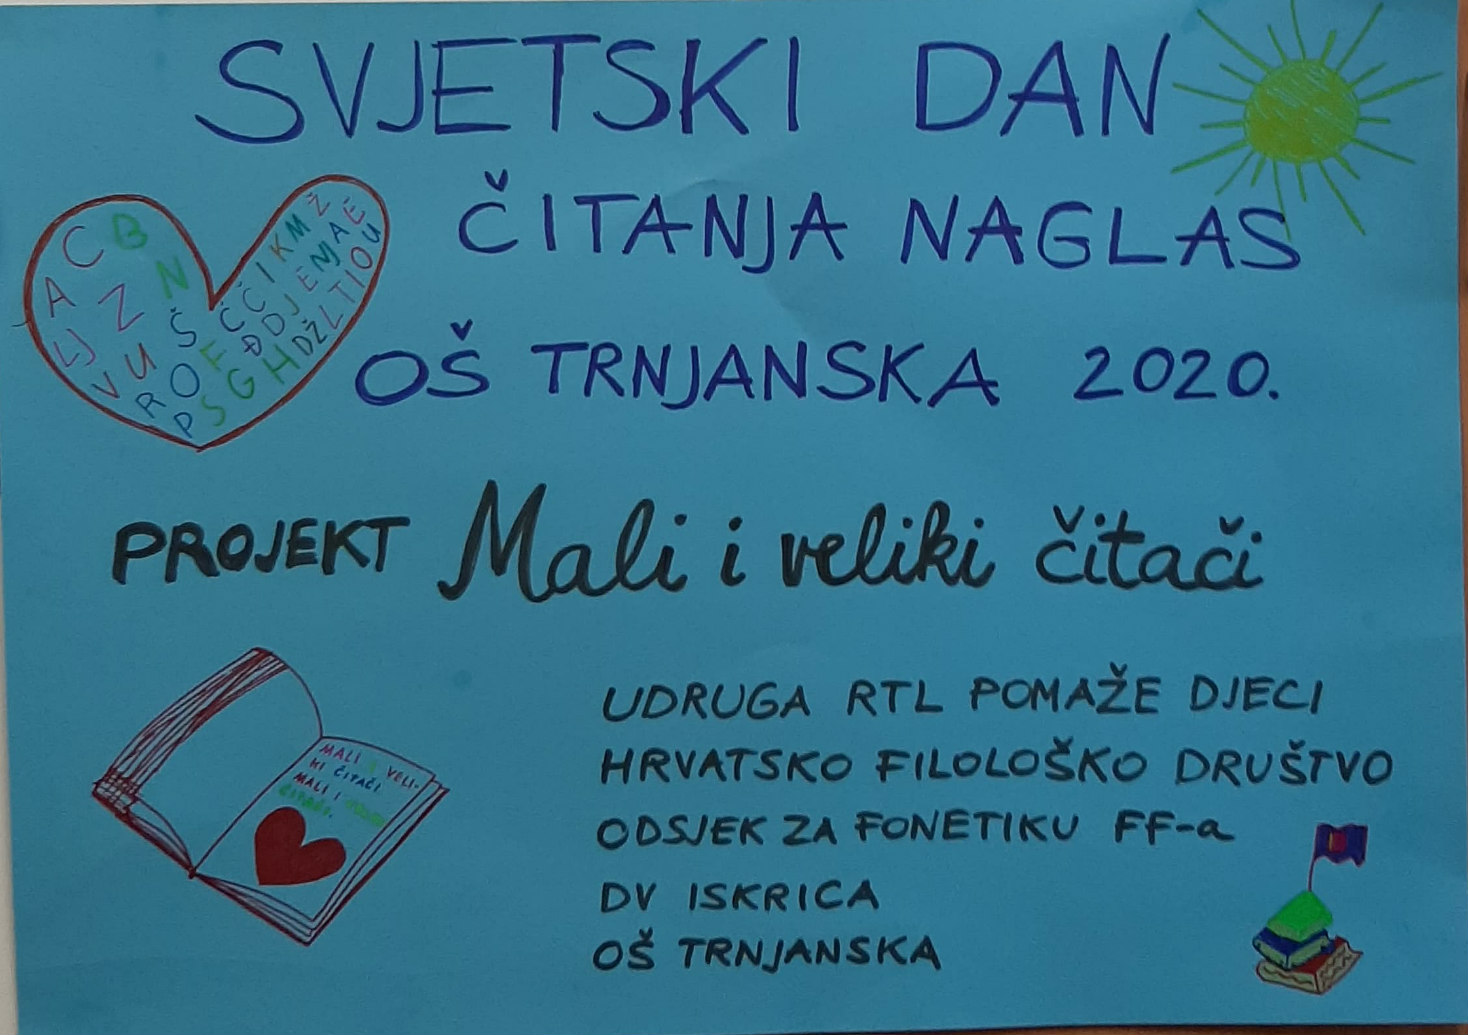 SVJETSKI DAN
ČITANJA NAGLAS
OŠ TRNJANSKA 2020.
A C B
LJ Z N
V U Š
R O F Č Ć I K M Ž
P S G H
PROJEKT Mali i veliki čitači
MALI I VELI-
KI ČITAČI
MALI I
UDRUGA RTL POMAŽE DJECI
HRVATSKO FILOLOŠKO DRUŠTVO
ODSJEK ZA FONETIKU FF-a
DV ISKRICA
OŠ TRNJANSKA